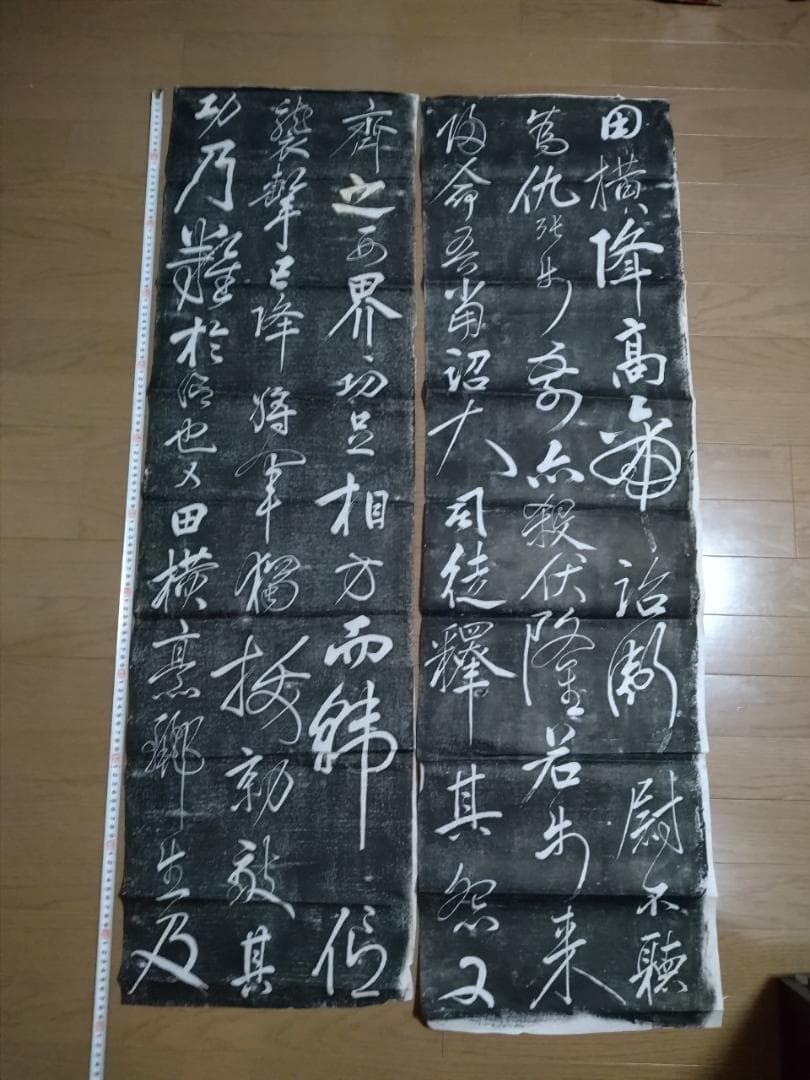 齊之西界功足相方而韓信
襲擊已降將軍獨拔勍敵其
功乃難於信也又田橫烹酈生及
田橫降高帝詔衛尉不聽
為仇張步前亦殺伏隆若步來
歸命吾當詔大司徒釋其怨又